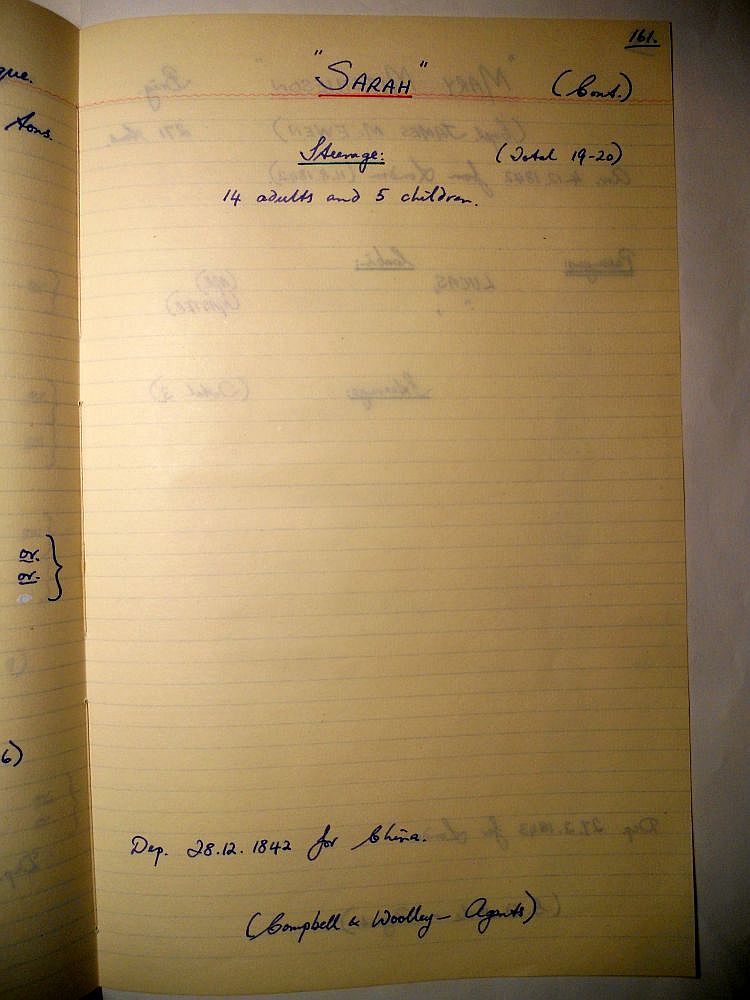 161.
"SARAH" (Cont.)
Steerage: (Total 19-20)
14 adults and 5 children.
Dep. 28.12.1842 for China.
(Campbell & Woolley — Agents)
que.
tons.
or.
or.
6)